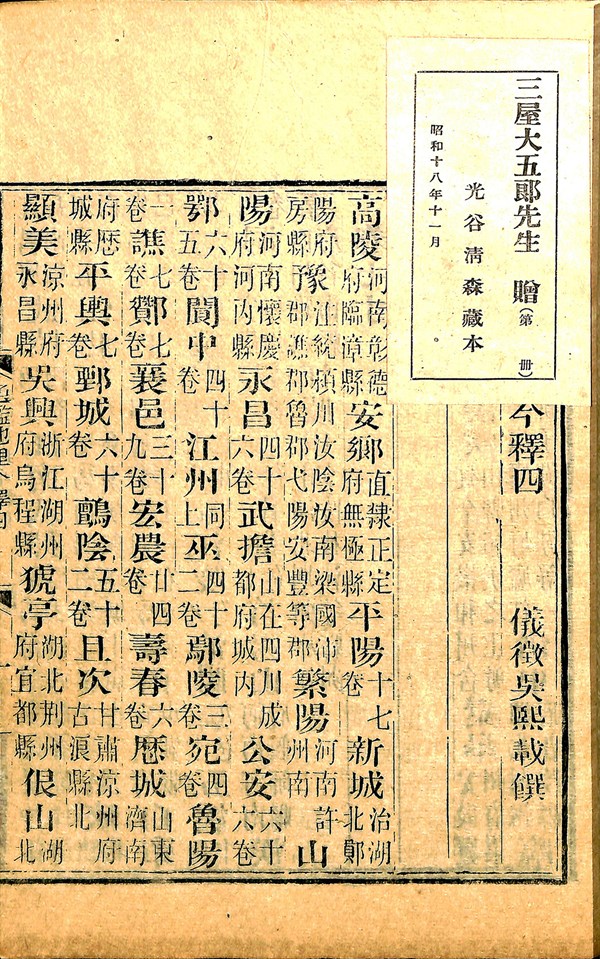 三屋大五郎先生 贈(第 冊)
光谷清森藏本
昭和十八年十一月
今釋四 儀徵吳熙載饌
高陵河南彰德府臨漳縣安鄉直隸正定府無極縣平陽十七卷新城治湖北鄖
陽府房縣豫注統潁川汝陰汝南梁國沛郡譙郡魯郡弋陽安豐等郡繁陽河南許州南山
陽河南懷慶府河內縣永昌四十六卷武擔山在四川成都府城內公安六十六卷
鄂六十五卷閬中四十卷江州同上巫四十二卷鄢陵三卷宛四卷魯陽
一卷譙七卷酇七卷襄邑三十九卷宏農廿四卷壽春六卷厯城山東濟南
府厯城縣平輿七卷鄄城六十卷鸇陰五十二卷且次甘肅涼州府古浪縣北
顯美涼州府永昌縣吳興浙江湖州府烏程縣猇亭湖北荆州府宜都縣佷山湖北